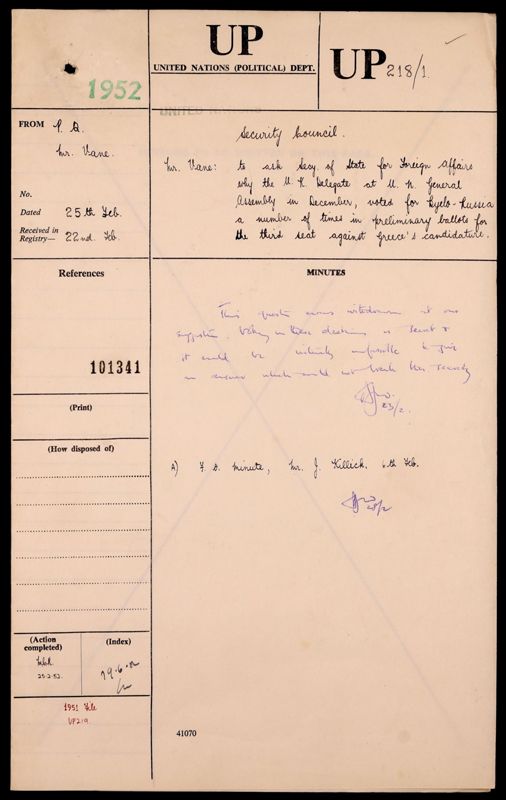 UP
UNITED NATIONS (POLITICAL) DEPT.
UP 218/1
1952
UNITED NATIONS
FROM P. Q.
Mr. Vane.
No.
Dated 25th Feb.
Received in
Registry— 22nd. Feb.
Security Council.
Mr. Vane: to ask Secy. of State for Foreign Affairs
why the U. K. Delegate at U. N. General
Assembly in December, voted for Byelo-Russia
a number of times in preliminary ballots for
the third seat against Greece's candidature.
References
101341
(Print)
(How disposed of)
(Action
completed)
25.2.52.
(Index)
19.6.52
1951 file
UP219
MINUTES
This question was withdrawn at our
suggestion. Voting in these elections is secret &
it would be virtually impossible to give
an answer which would not break this secrecy
23/2.
A) F. O. Minute, Mr. J. Killick. 6th Feb.
41070